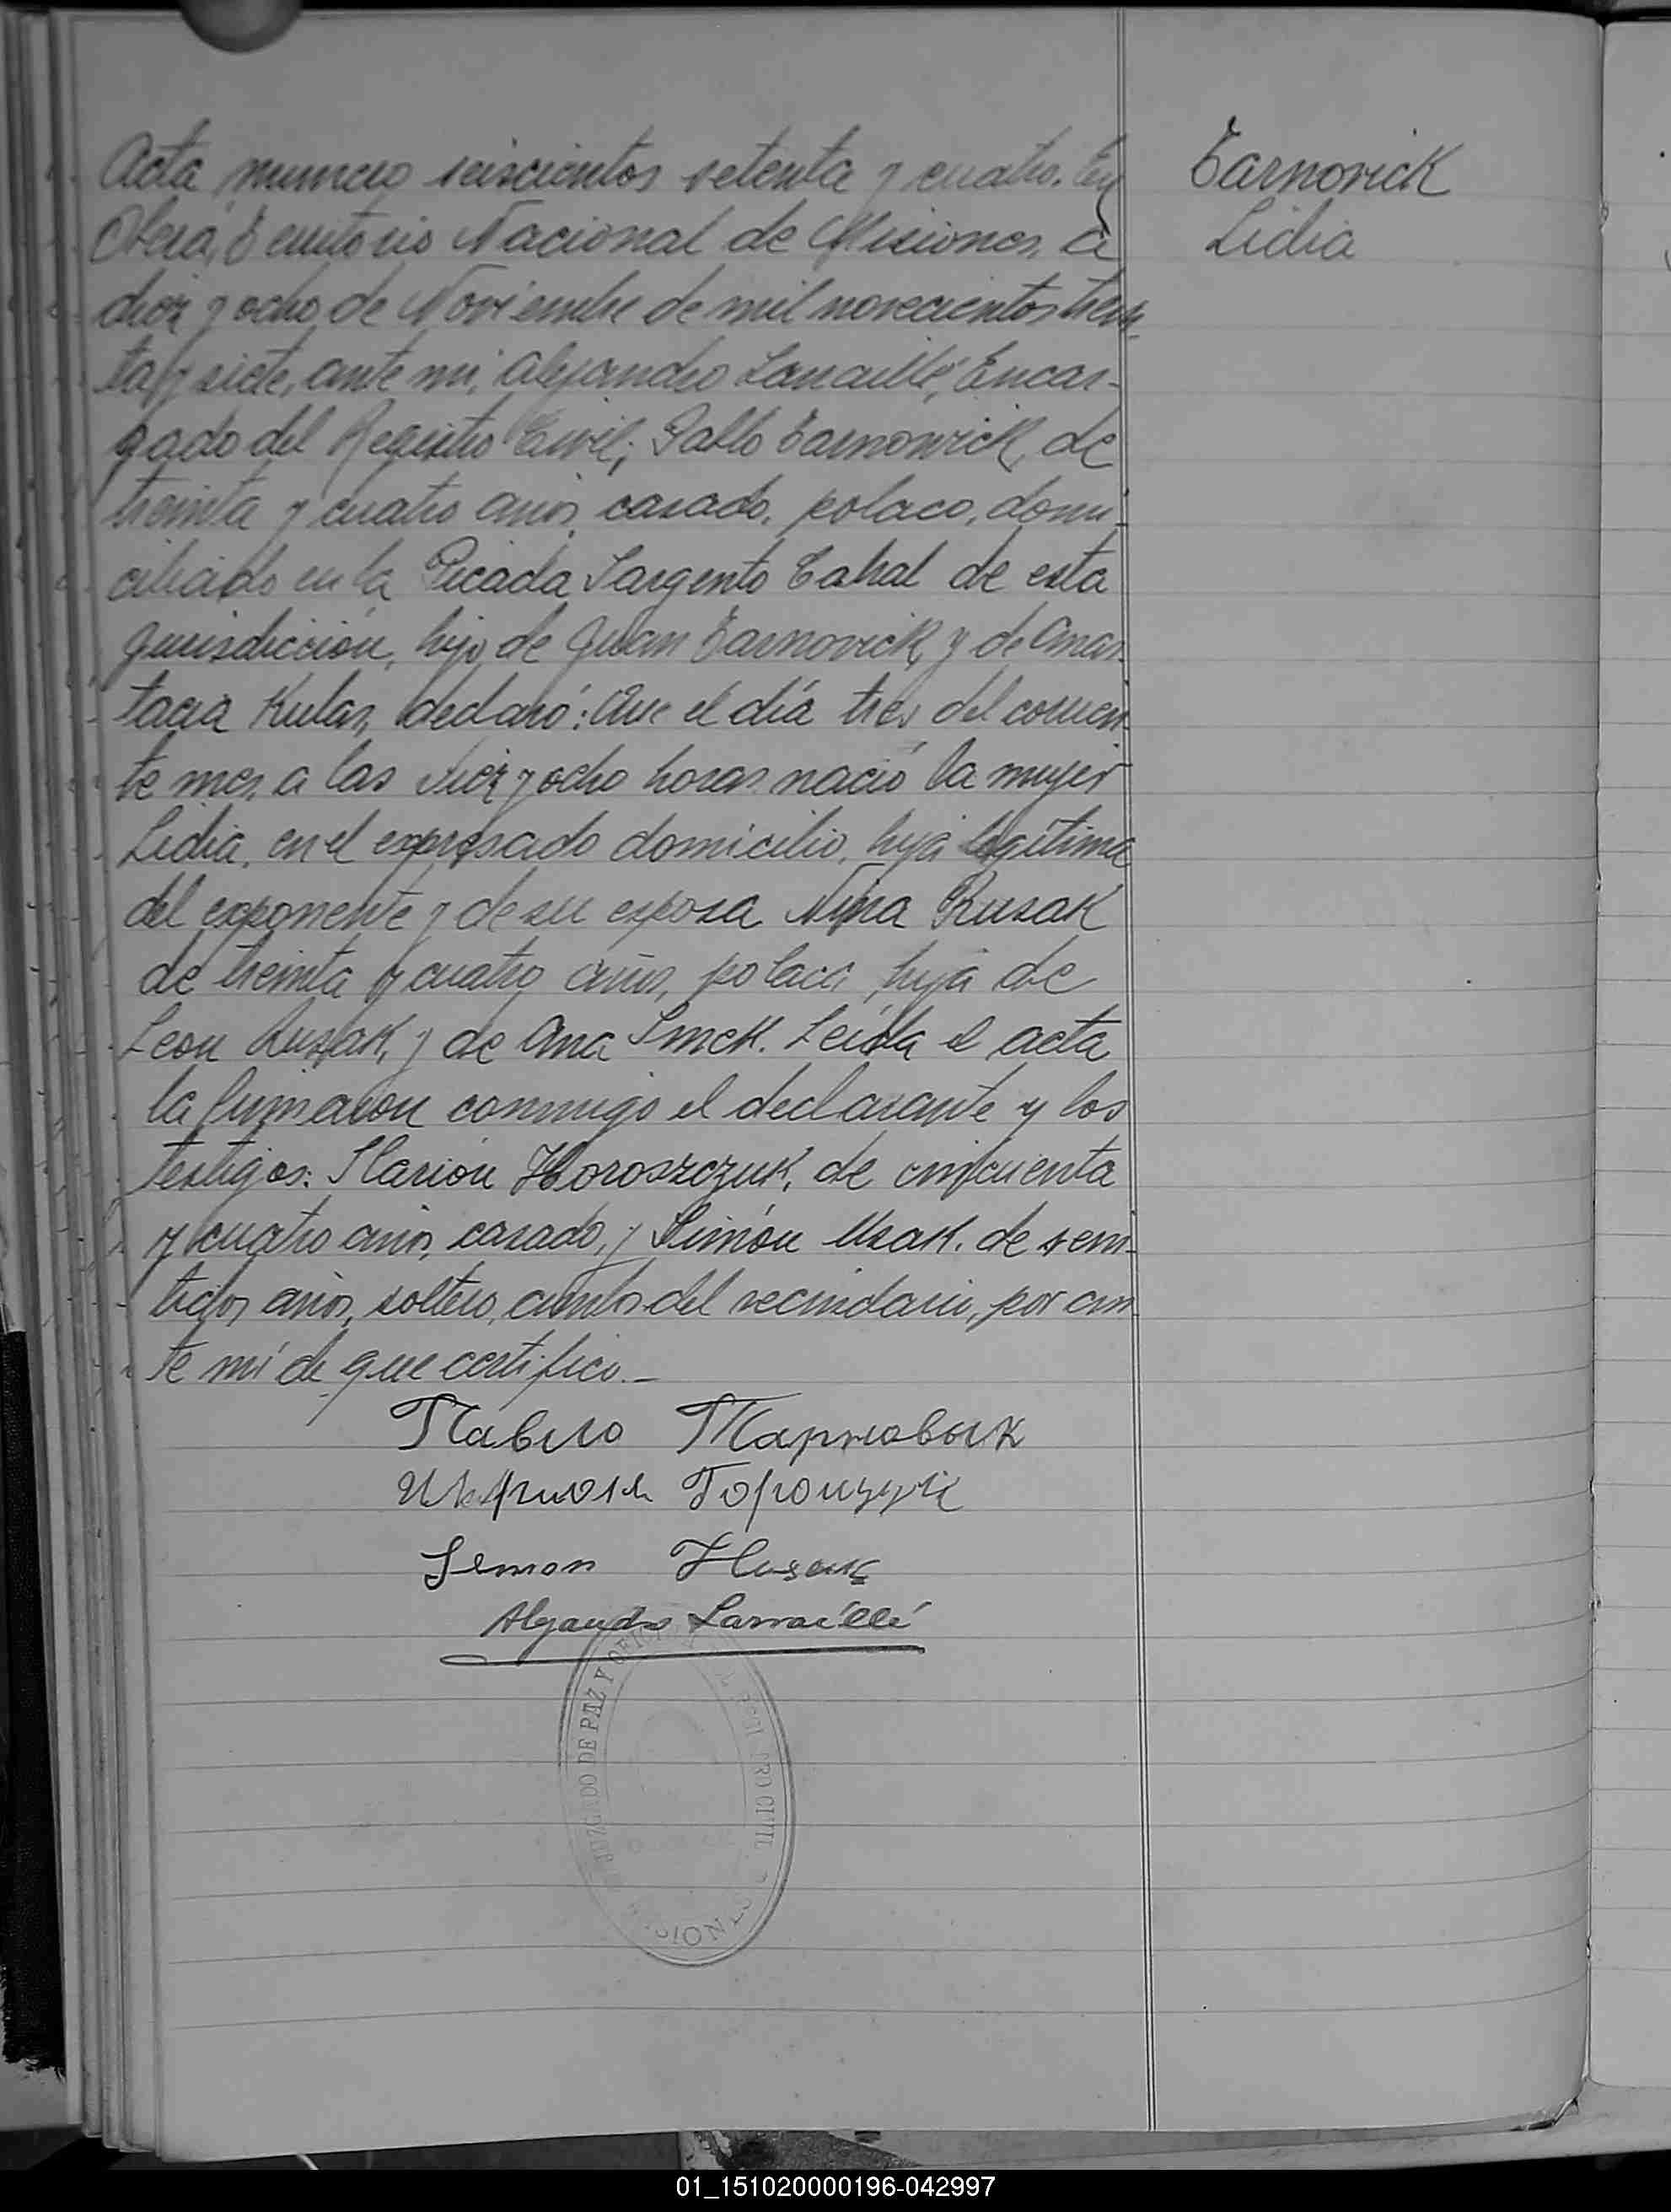 Acta numero seiscientos setenta y cuatro. En
Oberá, Territorio Nacional de Misiones, a
diez y ocho de Noviembre de mil novecientos trein-
ta y siete, ante mi, Alejandro Larraillé, Encar-
gado del Registro Civil; Pablo Tarnowick, de
treinta y cuatro años, casado, polaco, domi-
ciliado en la Picada Sargento Cabral de esta
jurisdicción, hijo de Juan Tarnovick, y de Anas-
tacia Kulas, declaró: Que el día tres del corrien-
te mes, a las diez y ocho horas nació la mujer
Lidia, en el expresado domicilio, hija legítima
del exponente y de su esposa Nina Rusak
de treinta y cuatro años, polaca, hija de
Leon Rusak, y de Ana Smek. Leida el acta
la firmaron conmigo el declarante y los
testigos: Ilarion Horoszczuk, de cincuenta
y cuatro años, casado, y Simón Usak, de vein-
tidos años, soltero, ambos del vecindario, por an-
te mí de que certifico.-
Tarnovick
Lidia
Павло Тарновык
Горощук
Semon
Alejandro Larraillé
JUZGADO DE PAZ Y OFICINA REGISTRO CIVIL
MISIONES
01_151020000196-042997